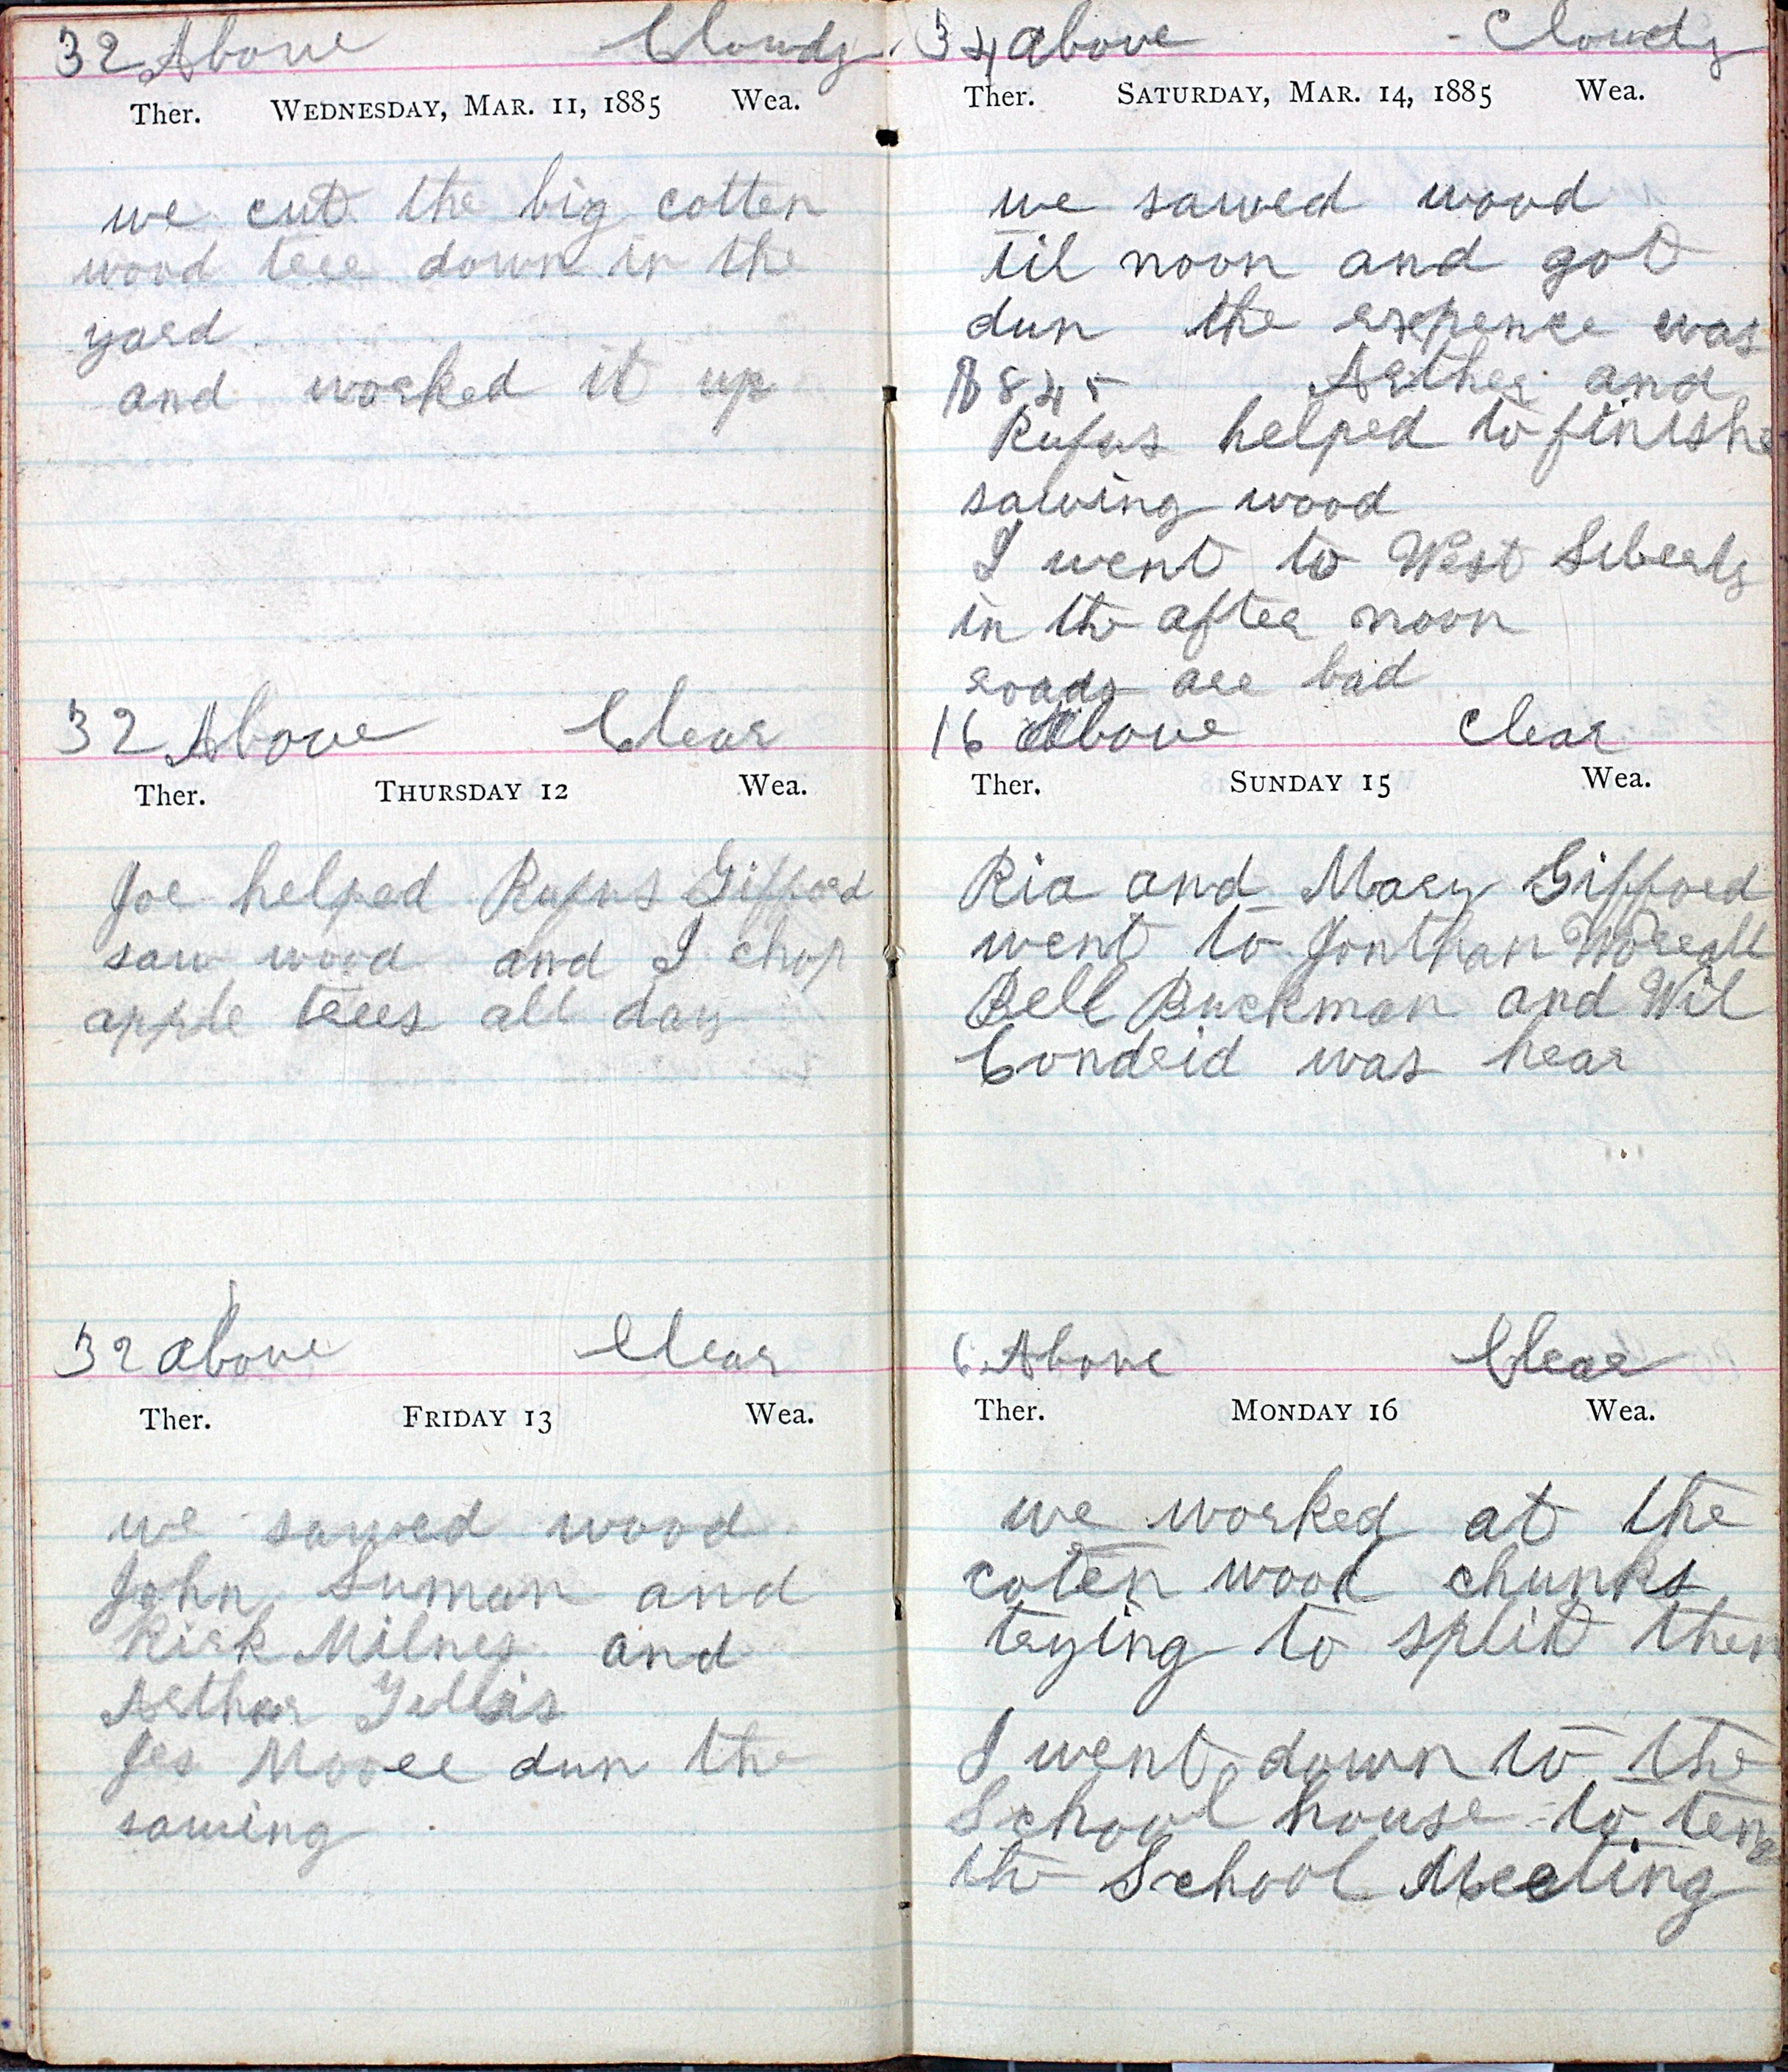 32 Above Cloudy
Ther. WEDNESDAY, MAR. 11, 1885 Wea.
we cut the big cotten
wood tree down in the
yard
and worked it up
32 Above Clear
Ther. THURSDAY 12 Wea.
Joe helped Rufus Gifford
saw wood and I chop
apple trees all day
32 above Clear
Ther. FRIDAY 13 Wea.
we sawed wood
John Suman and
Kirk Milnes and
Arthur
Jes Moore dun the
sawing
34 above Cloudy
Ther. SATURDAY, MAR. 14, 1885 Wea.
we sawed wood
til noon and got
dun the expence was
$8 45 Arther and
Rufus helped to finishe
sawing wood
I went to West Liberty
in the after noon
roads are bad
16 Above Clear
Ther. SUNDAY 15 Wea.
Ria and Mary Gifford
went to Jonthan Worall
Bell Buckman and Wil
Condrid was hear
6 Above Clear
Ther. MONDAY 16 Wea.
we worked at the
coten wood chunks
trying to split them
I went down to the
School house to tend
the School Meeting